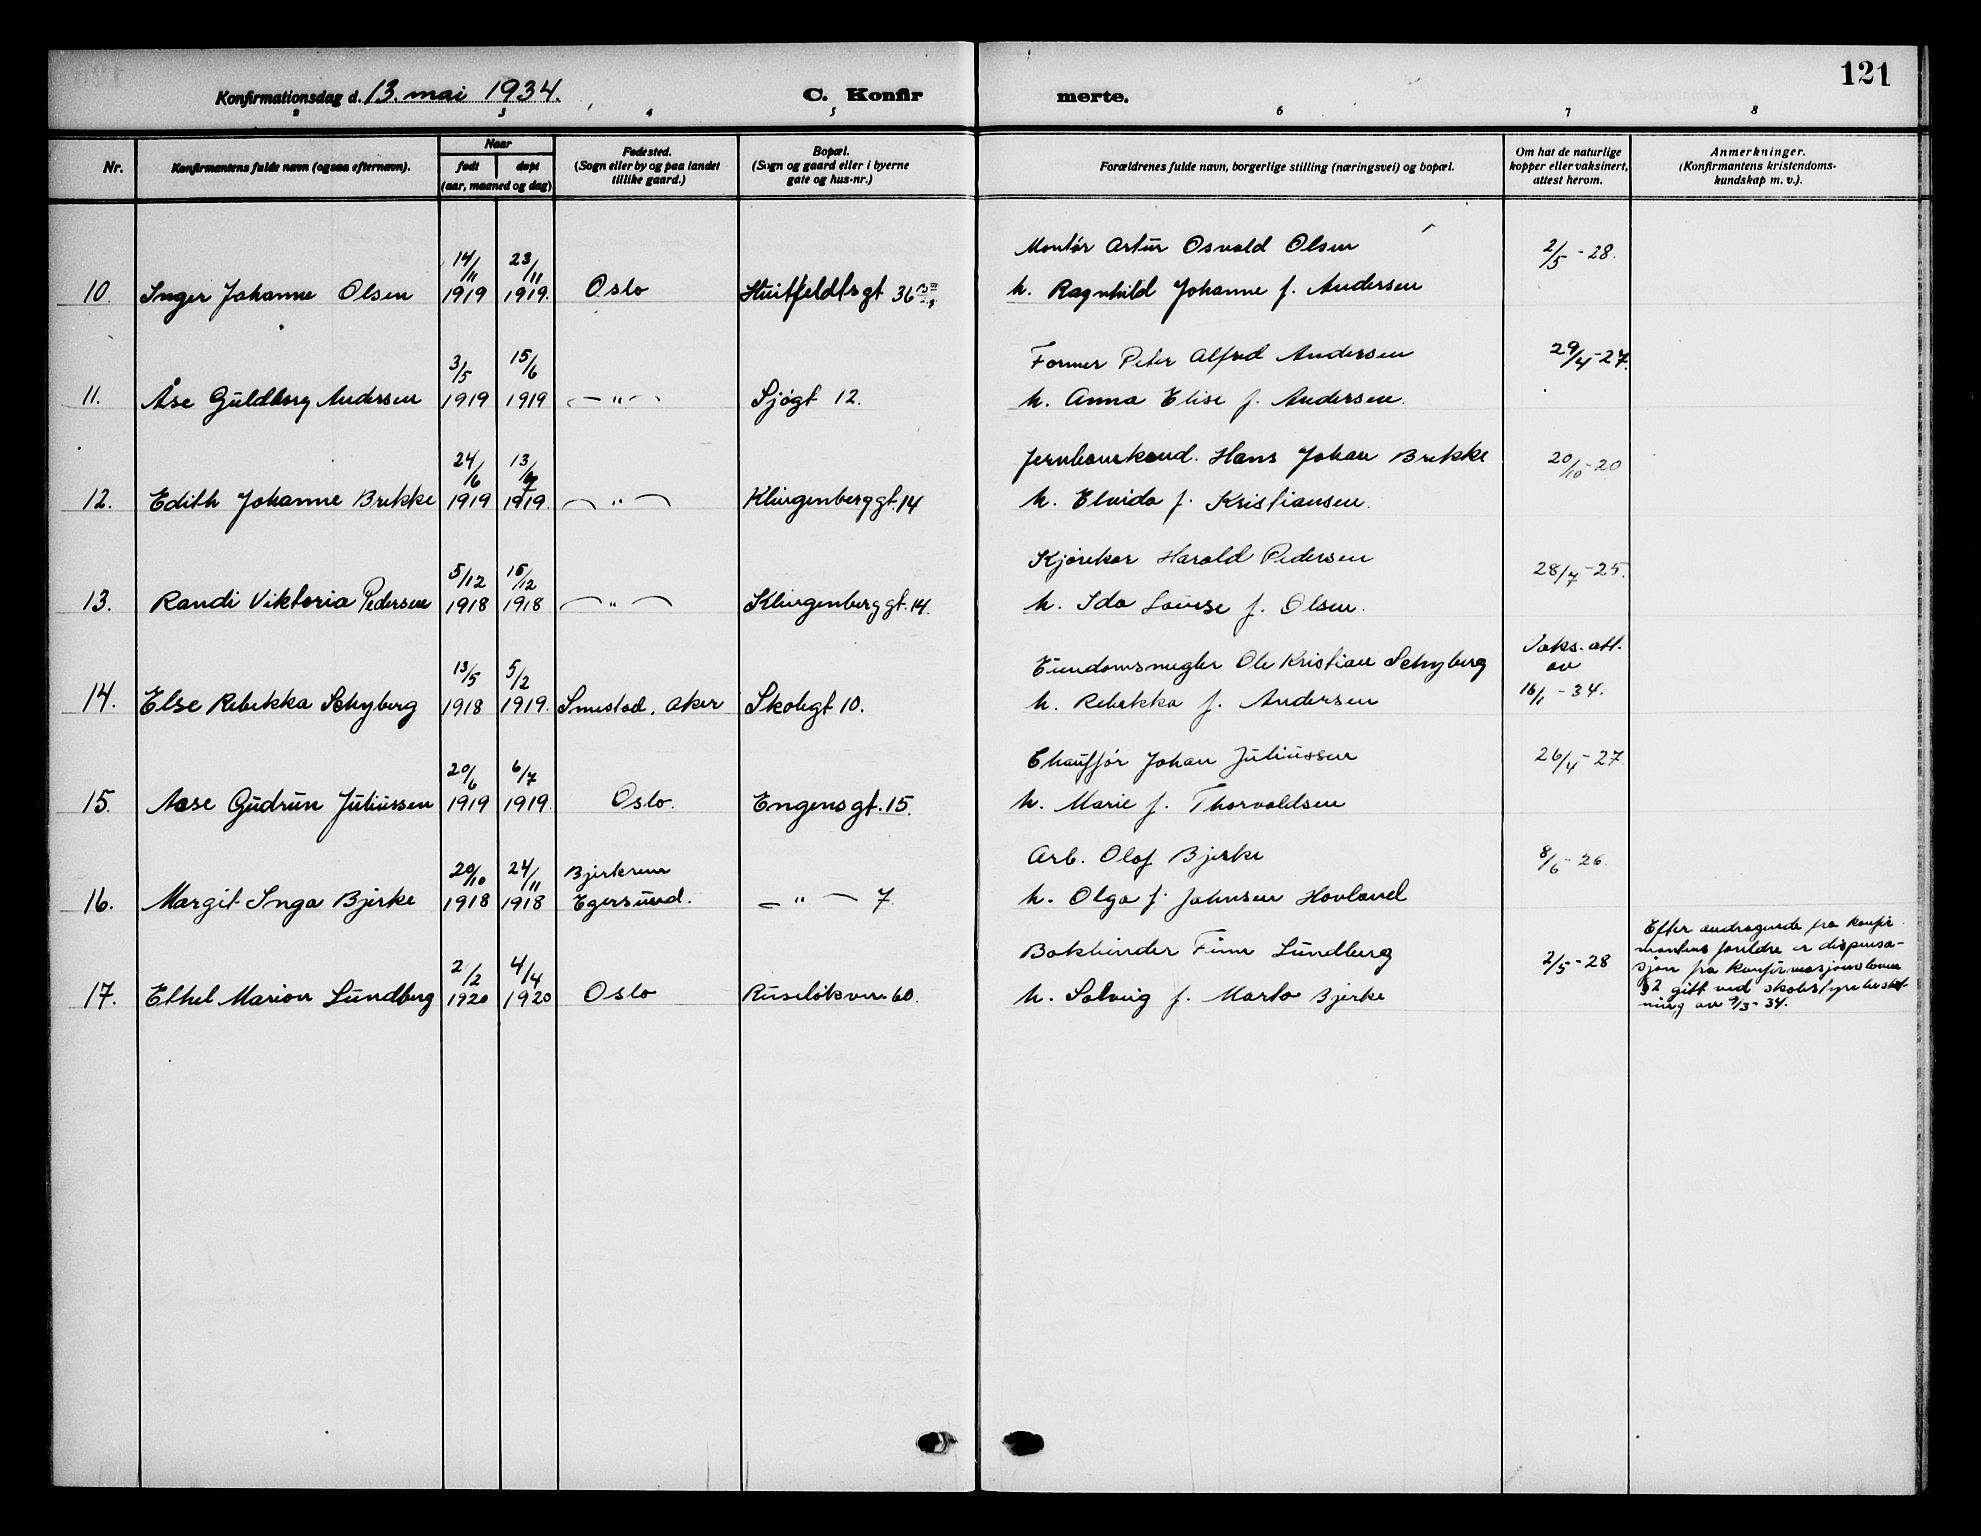 Konfirmationsdag d. 13. mai 1934. C. Konfirmerte. 121
2 3 4 5 6 7 8
Nr. Konfirmantens fulde navn (ogsaa efternavn). Naar født døpt (aar, maaned og dag) Fødested. (Sogn eller by og paa landet tillike gaard.) Bopæl. (Sogn og gaard eller i byerne gate og hus-nr.) Forældrenes fulde navn, borgerlige stilling (næringsvei) og bopæl. Om hat de naturlige kopper eller vaksinert, attest herom. Anmerkninger. (Konfirmantens kristendomskundskap m. v.).
14/11 23/11 Montør Artur Osvald Olsen 2/5-28.
10. Inger Johanne Olsen 1919 1919. Oslo Huitfeldtsgt 36 h. Ragnhild Johanne f. Andersen
3/5 15/6 Former Peter Alfred Andersen 29/4-27.
11. Åse Guldborg Andersen 1919 1919 — " — Sjøgt 12. h. Anna Elise f. Andersen.
24/6 13/9 Jernbanekond. Hans Johan Brekke 20/10-20
12. Edith Johanne Brekke 1919 1919. — " — Klingenberggt. 14 h. Elvida f. Kristiansen.
5/12 15/12 Kjørekar Harald Pedersen 28/7-25.
13. Randi Viktoria Pedersen 1918 1918 — " — Klingenberggt. 14. h. Ida Louise f. Olsen.
13/5 5/2 Eiendomsmegler Ole Kristian Schyberg Vaks. att. av
14. Else Rebekka Schyberg 1918 1919. Smestad, Aker Skolegt 10. h. Rebekka f. Andersen 16/1-34.
20/6 6/7 Chauffør Johan Juliussen 26/4-27.
15. Aase Gudrun Juliussen 1919 1919. Oslo. Engensgt. 15. h. Marie f. Thorvaldsen
20/10 24/11 Bjerkreim Arb. Olaf Bjerke 8/6-26.
16. Margit Inga Bjerke 1918 1918 Egersund. — " — 7. h. Olga f. Johnsen Hovland
2/2 4/4 Bokbinder Finn Lundberg 2/5-28
17. Ethel Marion Lundberg 1920 1920 Oslo Ruseløkvn. 60. h. Solveig f. Marto Bjerke
Efter andragende fra konfir-
mantens foreldre er dispensa-
sjon fra konfirmasjonsloven
§ 2 gitt ved skolestyrebeslut-
ning av 9/3-34.